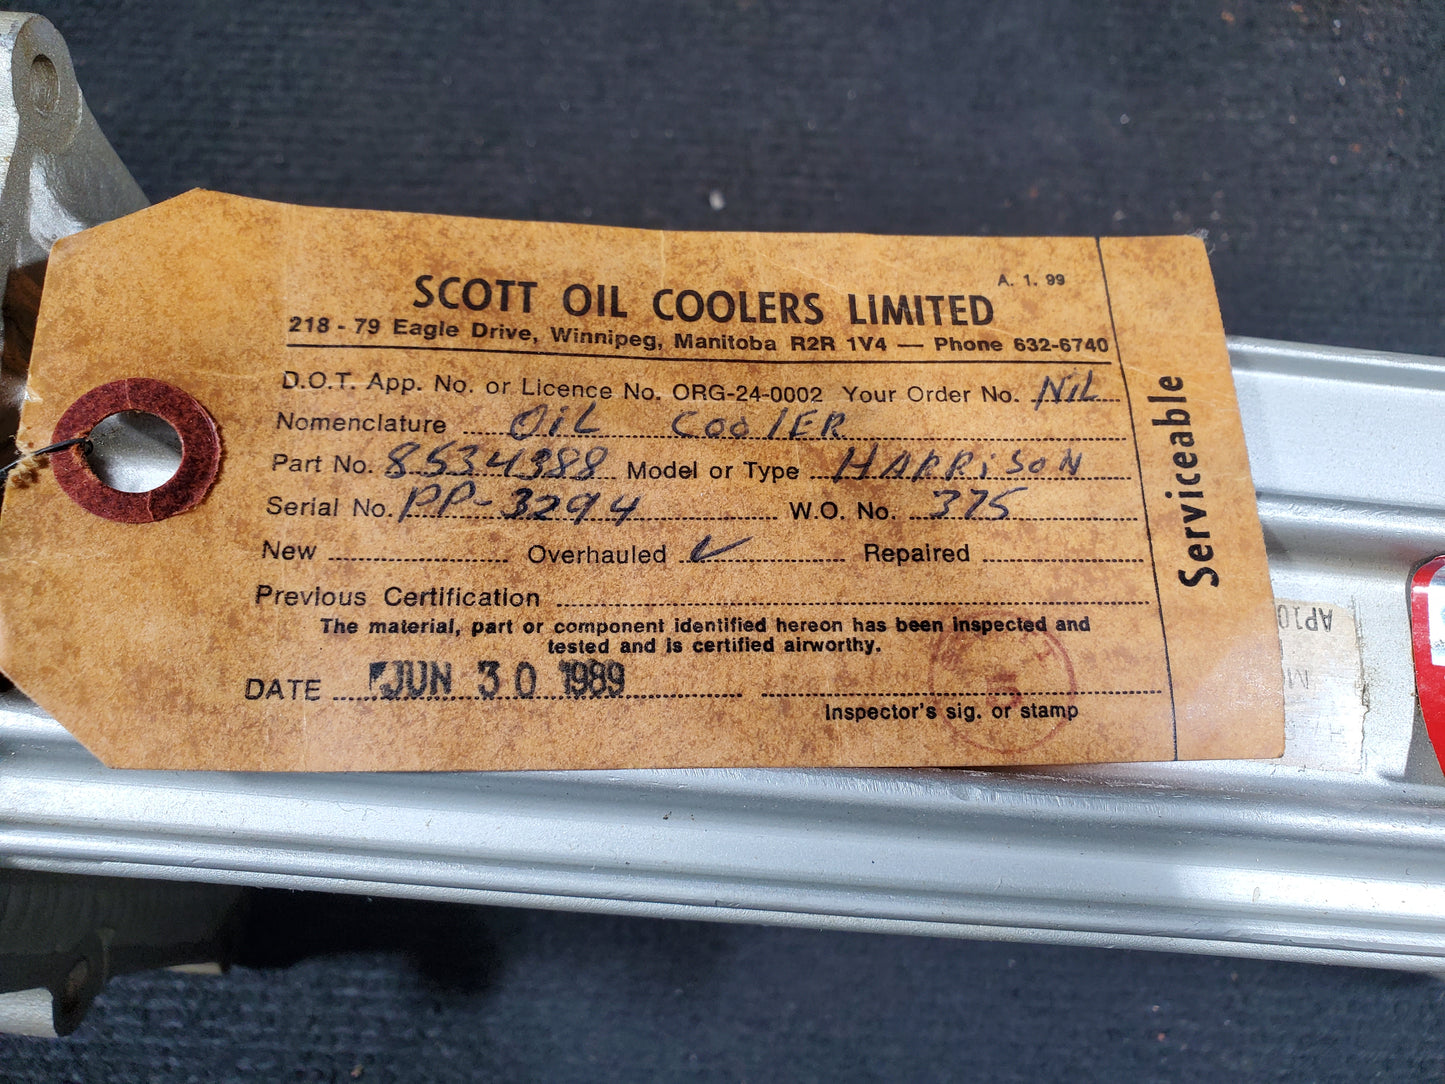 A. 1. 99
SCOTT OIL COOLERS LIMITED
218 - 79 Eagle Drive, Winnipeg, Manitoba R2R 1V4 — Phone 632-6740
D.O.T. App. No. or Licence No. ORG-24-0002 Your Order No. NiL
Nomenclature OiL CoolER
Part No. 8534388 Model or Type HARRiSON
Serial No. PP-3294 W.O. No. 375
New Overhauled ✓ Repaired
Previous Certification
The material, part or component identified hereon has been inspected and
tested and is certified airworthy.
DATE JUN 30 1989
Inspector's sig. or stamp
Serviceable
AP10